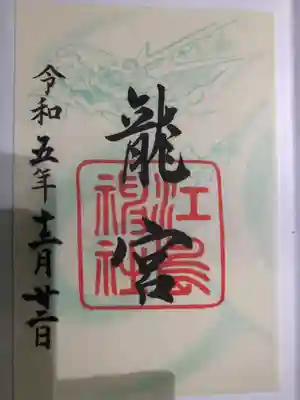 龍宮
江島
神社
令和五年十二月廿二日